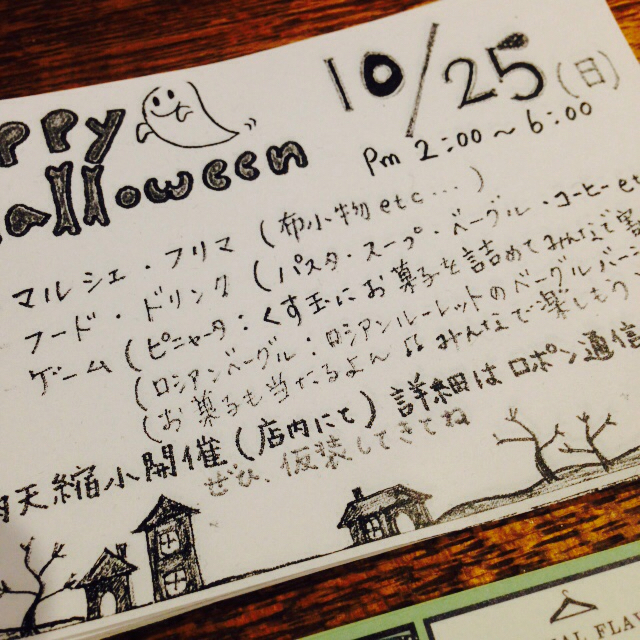 ppy
alloween
10/25(日)
pm 2:00～6:00
マルシェ・フリマ(布小物etc...)
フード・ドリンク(パスタ・スープ・ベーグル・コーヒーet
ゲーム(ピニャータ:くす玉にお菓子を詰めてみんなで
(ロシアンベーグル:ロシアンルーレットのベーグルバー
(お菓子も当たるよん♫みんなで楽しもう
天縮小開催(店内にて)詳細はロポン通信
ぜひ、仮装してきてね